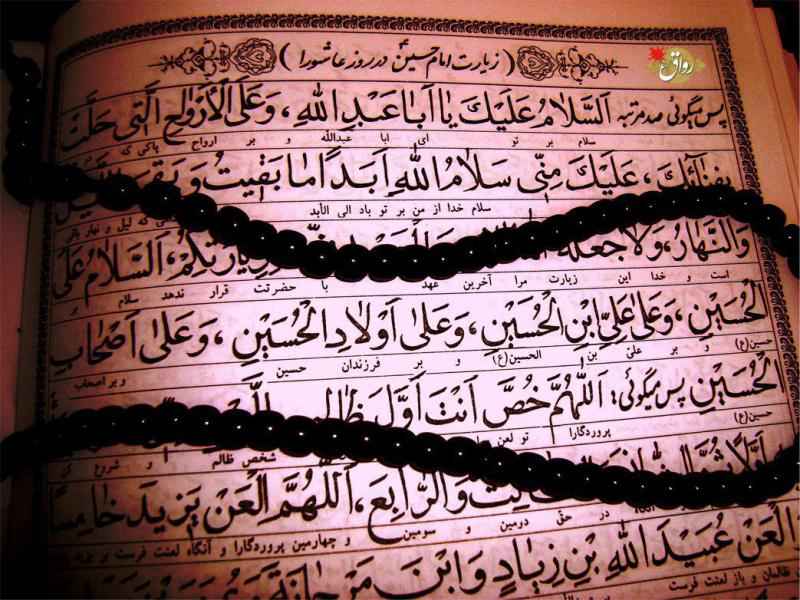 ( زیارت امام حسین ع در روز عاشورا )
رواق
پس میگوئی صد مرتبه اَلسَّلامُ عَلَیْكَ یا اَبا عَبْدِ اللهِ، وَعَلَی الْاَرْواحِ الَّتی حَلَّتْ
سلام بر تو ای ابا عبدالله و بر ارواح پاکی که
بِفِنائِكَ، عَلَیْكَ مِنّی سَلامُ اللهِ اَبَداً ما بَقیتُ وَ بَقِیَ اللَّیْلُ
سلام خدا از من بر تو باد الی الأبد که لیل و نهار باقی
وَالنَّهارُ، وَلا جَعَلَهُ زِیارَتِكُمْ، اَلسَّلامُ عَلَی
است و خدا این زیارت مرا آخرین عهد با حضرتت قرار ندهد سلام بر
الْحُسَیْنِ، وَعَلی عَلِیِّ ابْنِ الْحُسَیْنِ، وَعَلی اَوْلادِ الْحُسَیْنِ، وَعَلی اَصْحابِ
حسین(ع) و بر علی بن الحسین(ع) و بر فرزندان حسین و بر اصحاب
الْحُسَیْنِ پس میگوئی: اَللّهُمَّ خُصَّ اَنْتَ اَوَّلَ ظالِمٍ
حسین(ع) پروردگارا تو لعن شخص ظالم و شروع کن
اَوَّلاً ثُمَّ وَالرّابِعَ، اَللّهُمَّ الْعَنْ یَزیدَ خامِساً
در حق دومین و سومین و چهارمین پروردگارا و آنگاه لعنت فرست بر یزید
وَالْعَنْ عُبَیْدَ اللهِ بْنَ زِیادٍ وَابْنَ مَرْجانَةَ
ظالمان و باز لعنت فرست بر